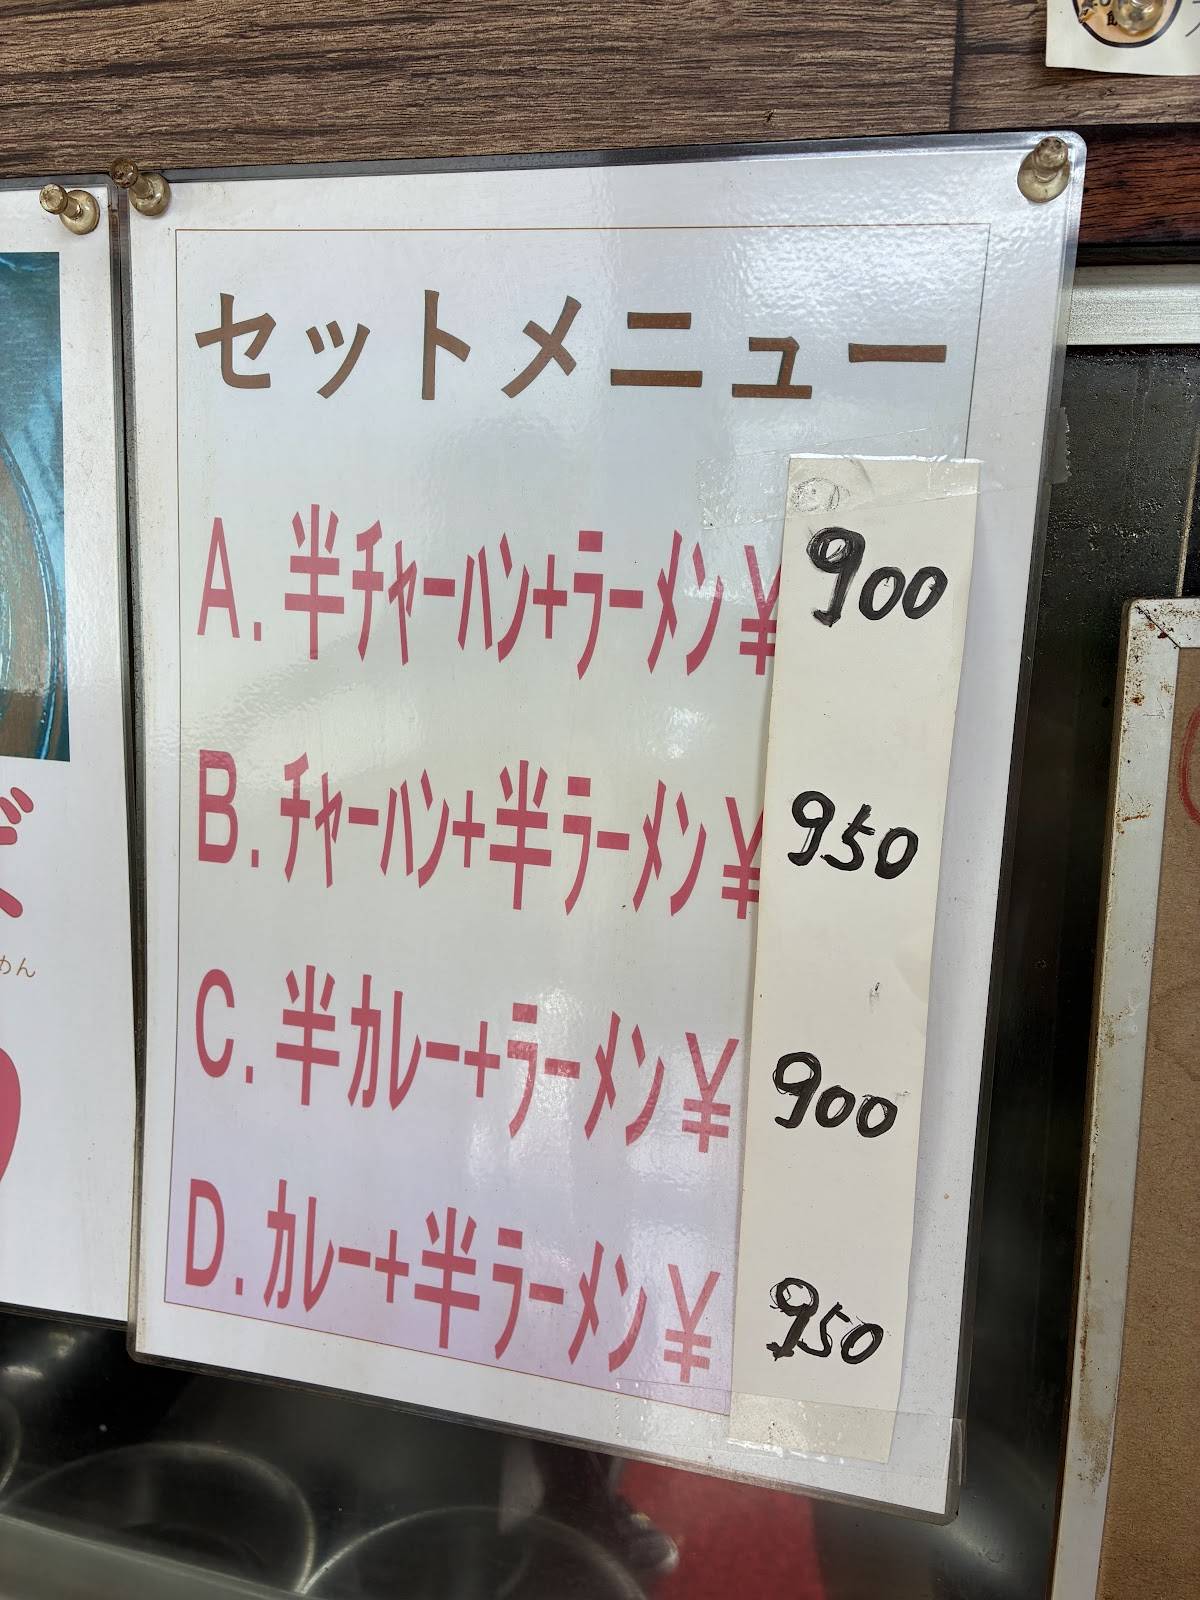 セットメニュー
A.半ﾁｬｰﾊﾝ+ﾗｰﾒﾝ¥900
B.ﾁｬｰﾊﾝ+半ﾗｰﾒﾝ¥950
C.半ｶﾚｰ+ﾗｰﾒﾝ¥900
D.ｶﾚｰ+半ﾗｰﾒﾝ¥950